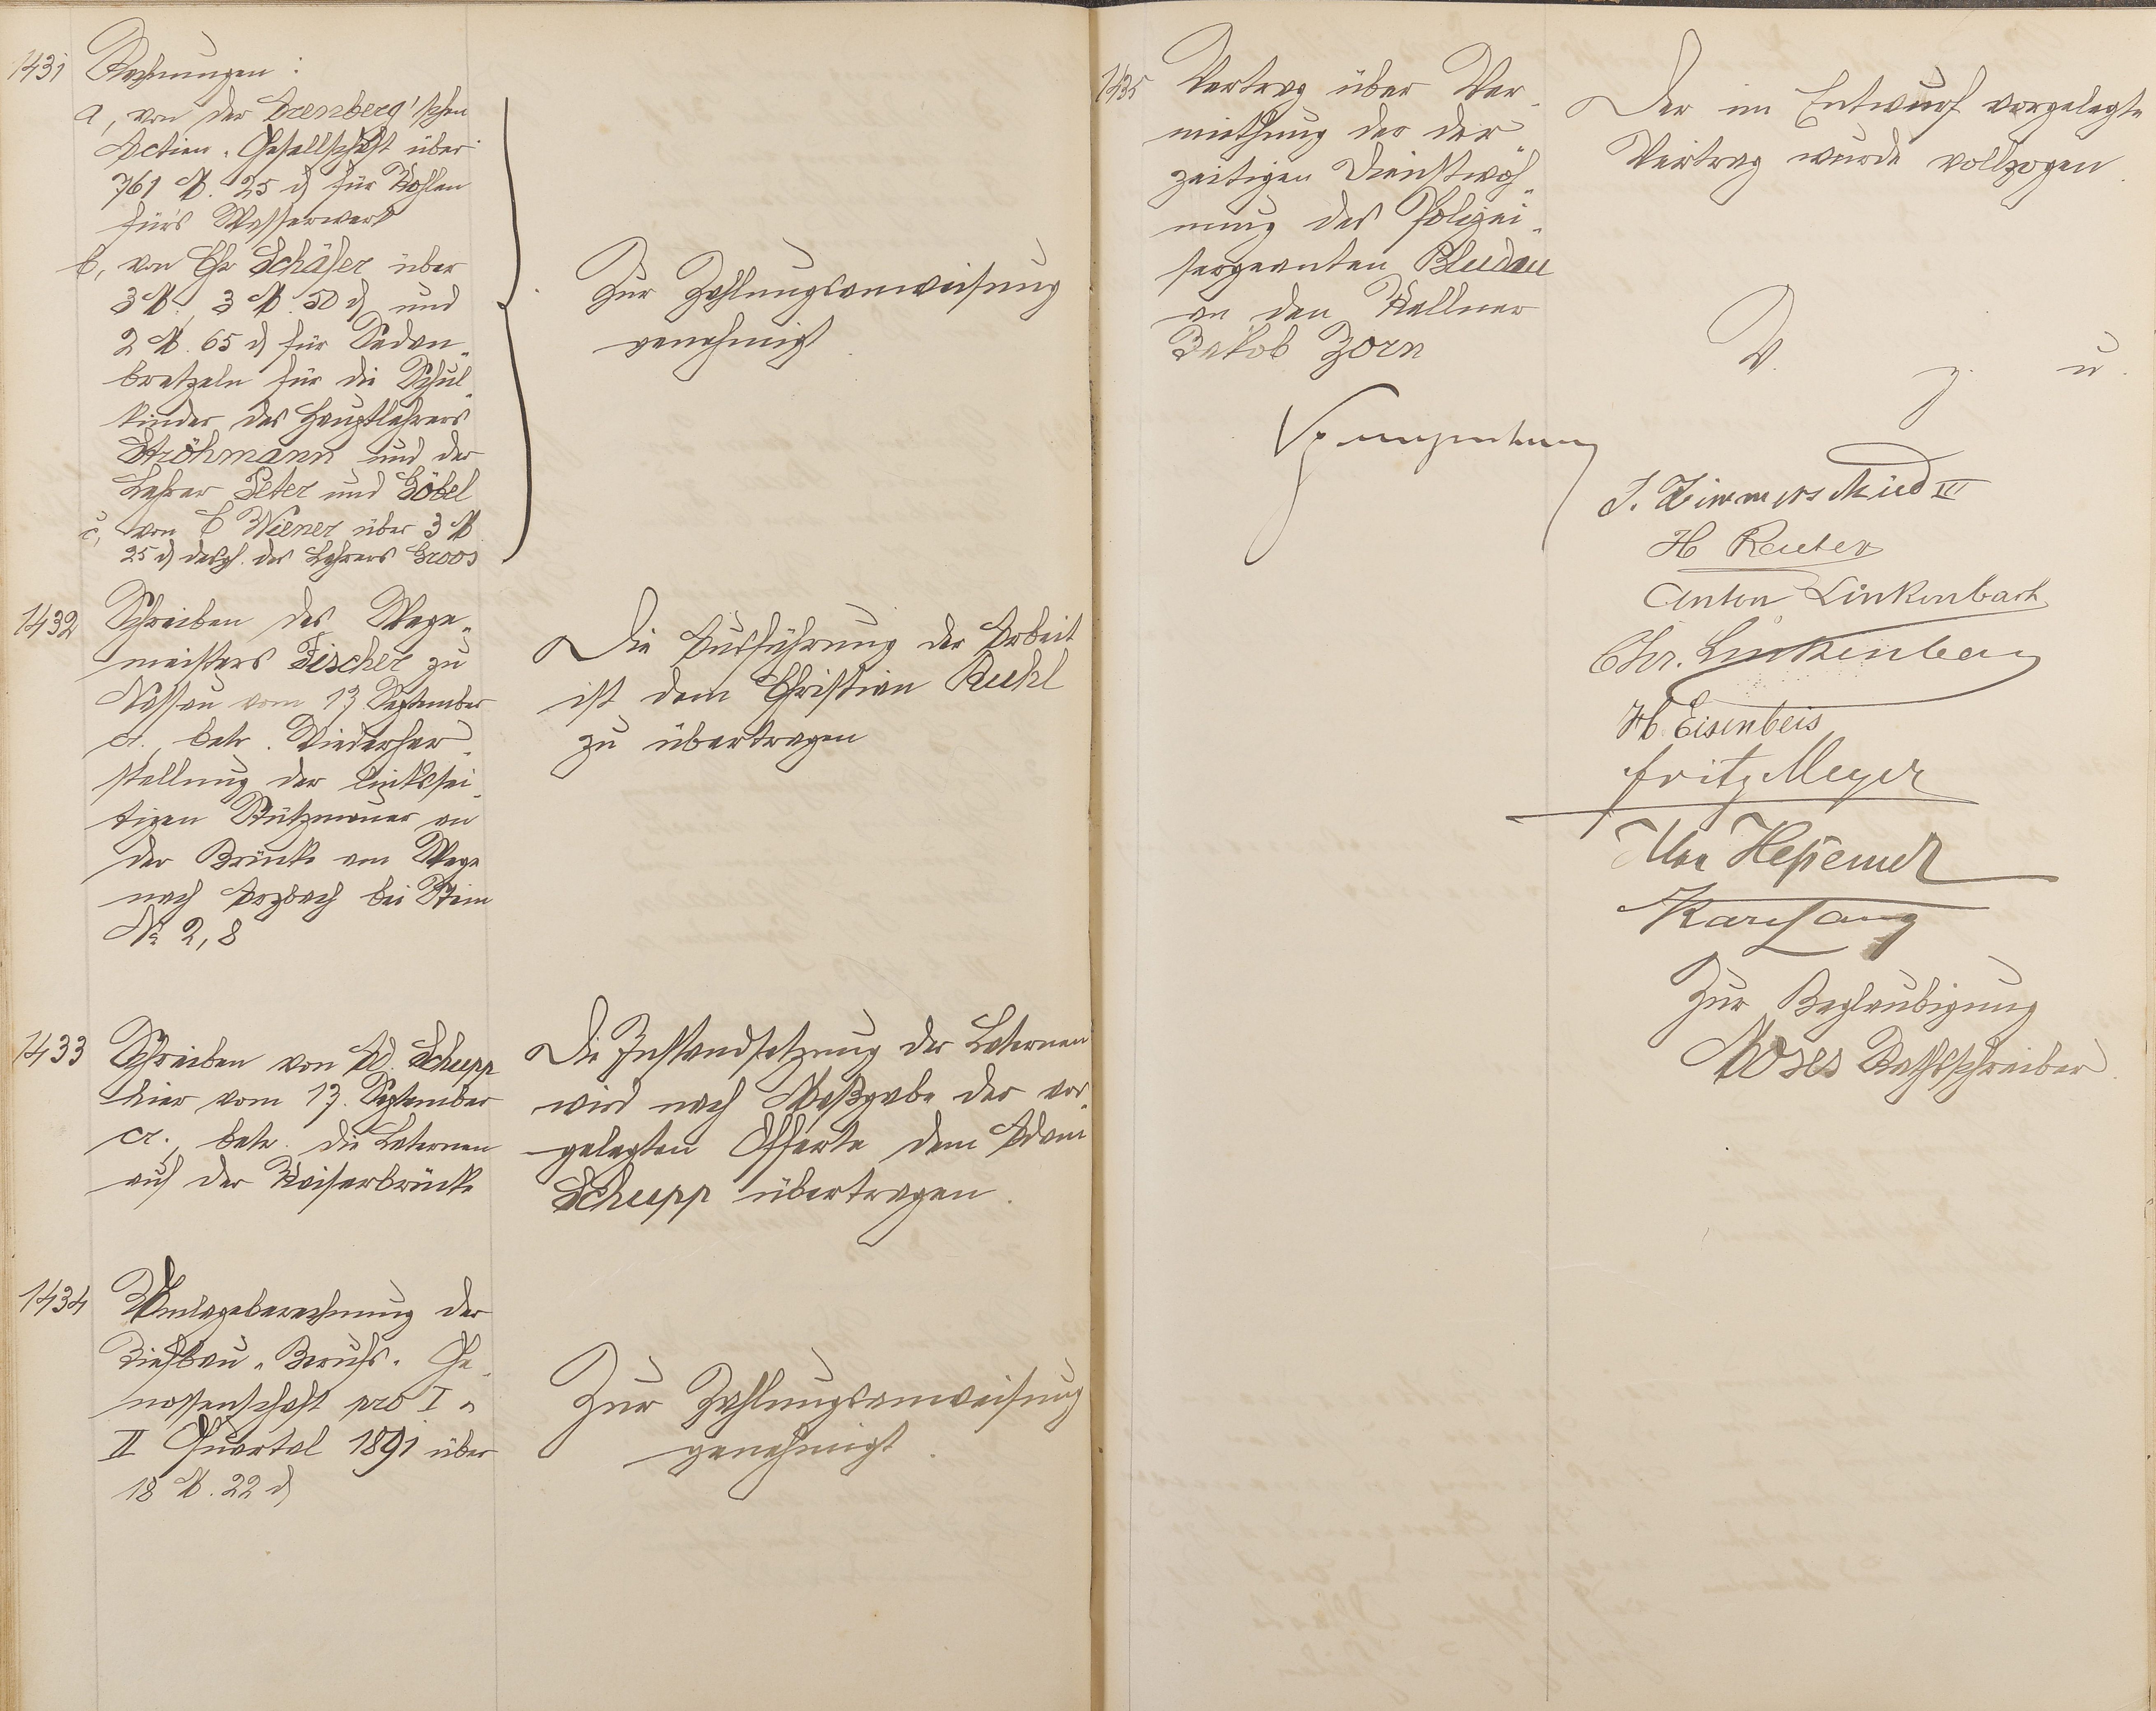 1431 Rechnungen:
a, von der Arenberg'schen
Actien-Gesellschaft über
761 M. 25 d für Kohlen
für's Wasserwerk
b, von Chr Schäfer über
3 M., 3 M. 50 d und
2 M. 65 d für Sedan-
bretzeln für die Schul-
kinder des Hauptlehrers
Ströhmann und der
Lehrer Peter und Göbel
c, von C Wiener über 3 M
25 d desgl. des Lehrers Groos
Zur Zahlungsanweisung
genehmigt
1432 Schreiben des Wege-
meisters Fischer zu
Nassau vom 13 September
cr. betr. Wiederher-
stellung der linkssei-
tigen Stützmauer an
der Brücke am Wege
nach Arzbach bei Stein
№ 2,8
Die Ausführung der Arbeit
ist dem Christian Ruhl
zu übertragen
1433 Schreiben von Ad. Schupp
hier vom 17. September
cr., betr. die Laternen
auf der Kaiserbrücke
Die Instandsetzung der Laternen
wird nach Maßgabe der vor-
gelegten Offerte dem Adam
Schupp übertragen.
1434 Umlageberechnung der
Tiefbau-Berufs-Ge-
nossenschaft pro I u
II Quartal 1891 über
18 M. 22 d
Zur Zahlungsanweisung
genehmigt.
1435 Vertrag über Ver-
miethung der der-
zeitigen Dienstwoh-
nung des Polizei-
sergeanten Bludau
an den Kellner
Jakob Zorn
Der im Entwurf vorgelegte
Vertrag wurde vollzogen.
V. g. u.
J. Zimmerschied III
H Reuter
Anton Linkenbach
Chr. Linkenbach
H. Eisenbeis
Fritz Meyer
Heßemer
Karl Lang
Zur Beglaubigung
Moses Rathsschreiber.